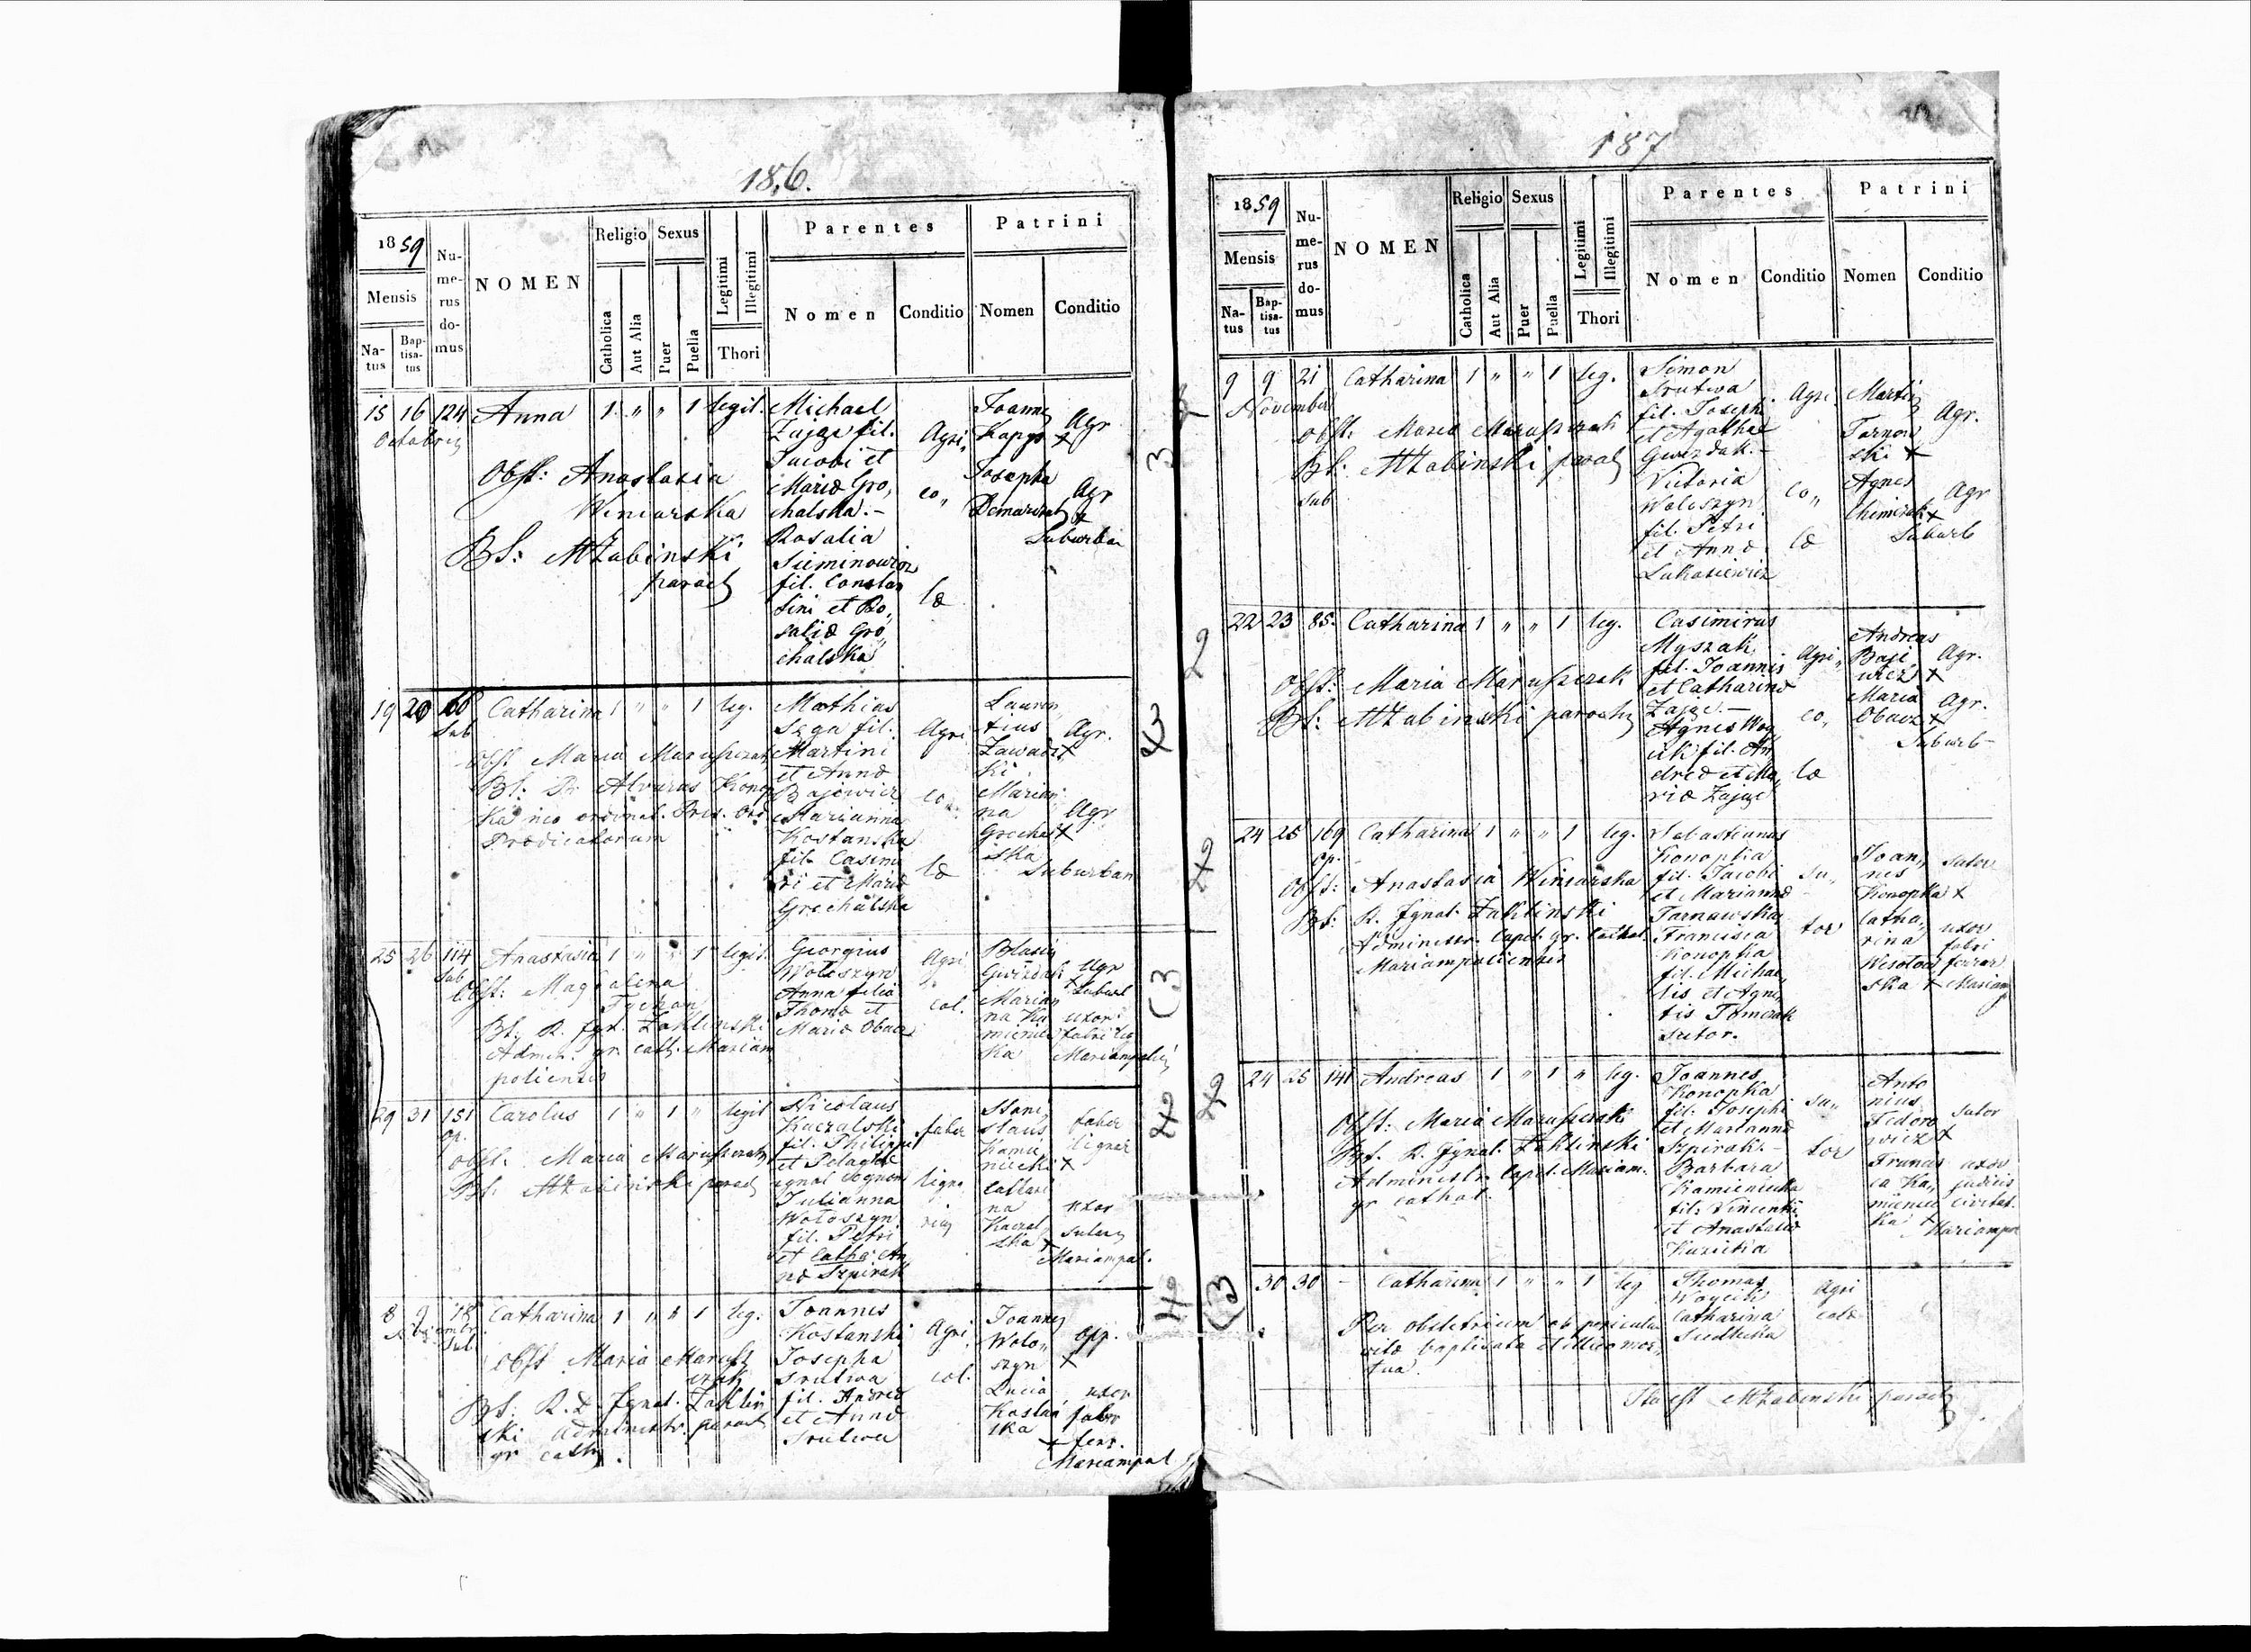 186.
1859
Mensis
Na-
tus
Bap-
tisa-
tus
Nu-
me-
rus
do-
mus
NOMEN
Religio
Catholica
Aut Alia
Sexus
Puer
Puella
Legitimi
Illegitimi
Thori
Parentes
Nomen
Conditio
Patrini
Nomen
Conditio
15 16 124 Anna 1 " " 1 legit.
Octobris
Obst: Anastasia
Winiarska
Bs: MZabinski
paroch
Michael
Zając fil.
Jacobi et
Mariæ Gro,
chalska.-
Rosalia
Siminowicz
fil. Constan
tini et Ro,
saliæ Gro,
chalska
Agri,
co,,
læ
Joannes
Kapys x
Agr
Josepha
Demarczak x
Agr
Suburban
19 20 60 Catharina 1 " " 1 leg.
Sub
Obst Maria Maruszczak
Bs: Pr Alvarus Konop
ka neo ordinat. Pres. Ord
Prædicatorum
Mathias
Sega fil.
Martini
et Annæ
Bajowicz
Marianna
Kostanska
fil. Casimi
ri et Mariæ
Grochalska
Agri
co,,
læ
Lauren
tius
Zawadz x
ki
Agr.
Marian
na
Grochal x
ska
Agr
Suburban
25 26 114 Anastasia 1 " " 1 legit.
Sub
Obst: Magdalena
Bs: R. Ign. Zaklinski
Admin. gr. cath. Mariam
poliensis
Georgius
Woloszyn
Anna filia
Thomæ et
Mariæ Obacz
Agri
col.
Blasius
Gwizdak
Agr
Suburb
Marian
na Ka
mienic
ka
uxor
fabri lig
Mariampolien
29 31 151 Carolus 1 " 1 " legit
Op.
Obst. Maria Maruszczak
Bs: MZabinski paroch
Nicolaus
Kaczalski
fil. Philippi
et Pelagiæ
Julianna
Woloszyn
fil. Petri
et Catha An
næ Szpirak
faber
ligna
rius
Stani
slaus
Kamie
niecki x
faber
lignar
Cathari
na
Kaczal
ska x
uxor
sutoris
Mariampol.
8 9 78 Catharina 1 " " 1 leg.
Novembr.
Sub
Obst Maria Marusz
czak
Bs: R.D. Ignat. Zaklin
ski Administr. paroch
gr cath.
Joannes
Kostanski
Josepha
Srutwa
fil. Andreæ
et Annæ
Srutwa
Agri,
col.
Joannes
Wolo,
szyn x
Opp.
Lucia
Kostań
ska
uxor
fabr
x ferr.
Mariampol
187
1859
Mensis
Na-
tus
Bap-
tisa-
tus
Nu-
me-
rus
do-
mus
NOMEN
Religio
Catholica
Aut Alia
Sexus
Puer
Puella
Legitimi
Illegitimi
Thori
Parentes
Nomen
Conditio
Patrini
Nomen
Conditio
9 9 21 Catharina 1 " " 1 leg.
November
Obst: Maria Maruszczak
Bs: MZabinski paroch
Sub
Simon
Srutwa
fil. Joseph
et Agathæ
Gwizdak.-
Victoria
Woloszyn
fil. Petri
et Annæ
Lukasiewicz
Agri
co,,
læ
Martin
Tarnow
ski x
Agr.
Agnes
Chimczak x
Agr
Suburb
22 23 85. Catharina 1 " " 1 leg.
Obst: Maria Maruszczak
Bs: MZabinski parochus
Casimirus
Myszak
fil. Joannis
et Catharinæ
Zając.-
Agnes Woy
cik fil. An
dreæ et Ma,
riæ Zając
Agri,,
co,
læ
Andreas
Baje,
wicz x
Agr.
Maria
Obacz x
Agr.
Suburb-
24 25 169 Catharina 1 " " 1 leg.
Op.
Obst: Anastasia Winiarska
Bs: R. Ignat. Zaklinski
Administr. Capel. gr. Cathol.
Mariampoliensis
Sebastianus
Konopka
fil. Jacobi
et Mariannæ
Tarnawska
Francisca
Konopka
fil. Micha,
lis et Agne,
tis Tomczak
sutor.
su,,
tor
Joan,
nes
Konopka x
sutor
Catha,
rina
Wesolow
ska x
uxor
fabri
ferrar
Mariamp
24 25 141 Andreas 1 " 1 " leg.
Obst: Maria Maruszczak
Bs. R. Ignat. Zaklinski
Administr. Capel. Mariam.
gr cathol.
Joannes
Konopka
fil. Josephi
et Mariannæ
Szpirak.-
Barbara
Kamieniecka
fil. Vincenti
et Anastasiæ
su,,
tor
Anto
nius
Fedoro
wicz x
sutor
Francis
ca Ka,
mieniec
ka x
uxor
judicis
civitat.
Mariampol
30 30 - Catharina 1 " " 1 leg
Per obstetricem ob periculum
vitæ baptisata et illico mor,
tua.
Thomas
Woycik
Catharina
Siedlecka
Agri
colæ
Ita est MZabinski paroch